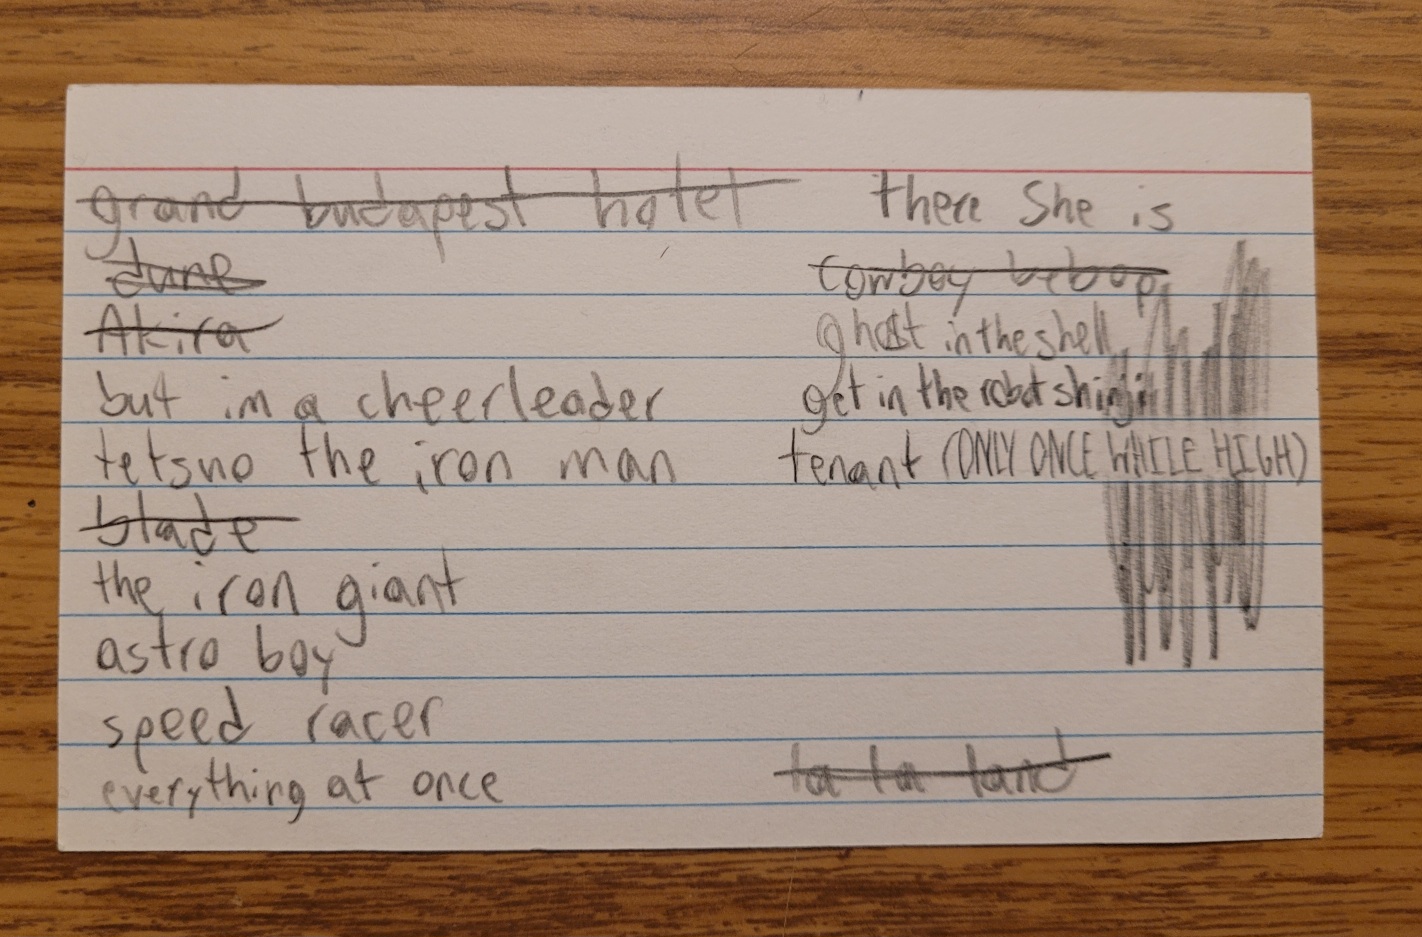 grand budapest hotel
dune
Akira
but im a cheerleader
tetsuo the iron man
blade
the iron giant
astro boy
speed racer
everything at once
there She is
cowboy bebop
ghost in the shell
get in the robot shinji
tenant (ONLY ONCE WHILE HIGH)
la la land